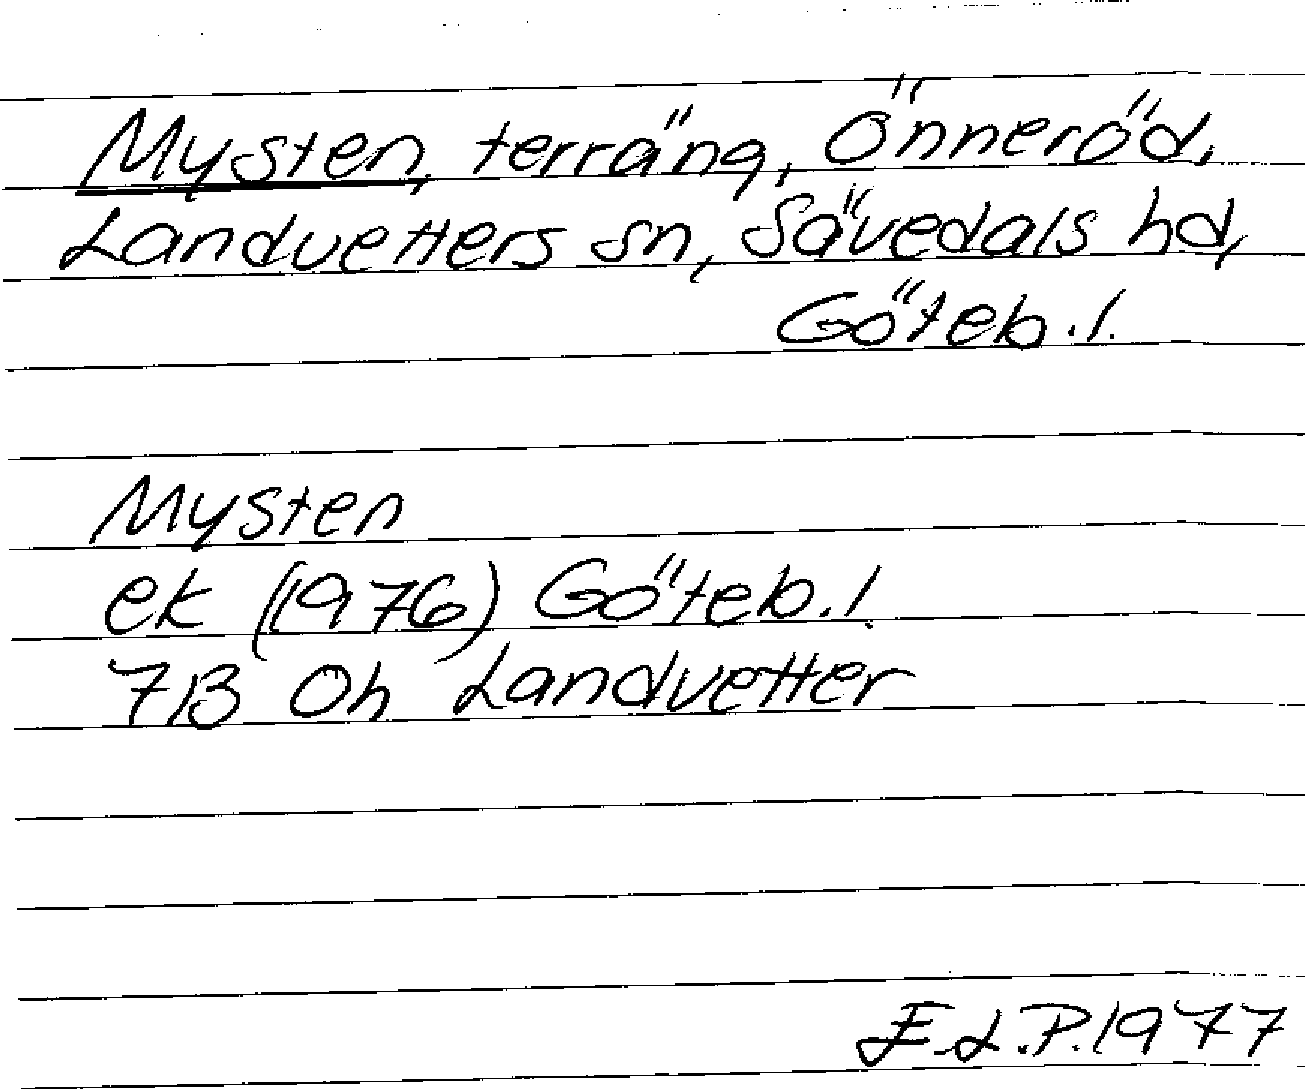 Mysten, terräng, Önneröd,
Landvetters sn, Sävedals hd,
Göteb. l.
Mysten
ek (1976) Göteb. l.
7B 0h Landvetter
E.L.P. 1977